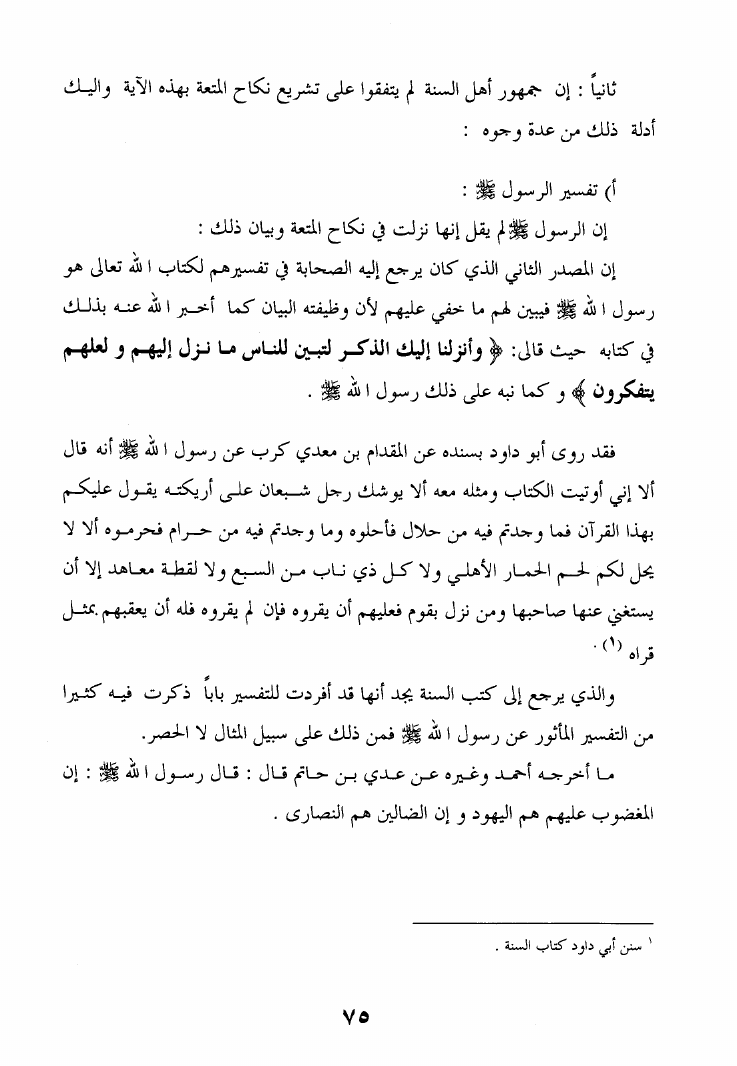 ثانياً : إن جمهور أهل السنة لم يتفقوا على تشريع نكاح المتعة بهذه الآية واليـك
أدلة ذلك من عدة وجوه :
أ) تفسير الرسول ﷺ :
إن الرسول ﷺلم يقل إنها نزلت في نكاح المتعة وبيان ذلك :
إن المصدر الثاني الذي كان يرجع إليه الصحابة في تفسيرهم لكتاب الله تعالى هو
رسول الله ﷺ فيبين لهم ما خفي عليهم لأن وظيفته البيان كما أخـبر الله عنـه بذلـك
في كتابه حيث قال: ﴿ وأنزلنا إليك الذكـر لتبين للناس مـا نـزل إليهـم و لعلهـم
يتفكرون ﴾ و كما نبه على ذلك رسول الله ﷺ .
فقد روى أبو داود بسنده عن المقدام بن معدي كرب عن رسول الله ﷺ أنه قال
ألا إني أوتيت الكتاب ومثله معه ألا يوشك رجل شـبعان علـى أريكتـه يقـول عليكـم
بهذا القرآن فما وجدتم فيه من حلال فأحلوه وما وجدتم فيه من حـرام فحرمـوه ألا لا
يحل لكم لحـم الحمـار الأهلـي ولا كـل ذي نـاب مـن السبع ولا لقطـة معـاهد إلا أن
يستغني عنها صاحبها ومن نزل بقوم فعليهم أن يقروه فإن لم يقروه فله أن يعقبهم بمثـل
قراه (١) .
والذي يرجع إلى كتب السنة يجد أنها قد أفردت للتفسير باباً ذكرت فيـه كثـيرا
من التفسير المأثور عن رسول الله ﷺ فمن ذلك على سبيل المثال لا الحصر.
مـا أخرجـه أحمـد وغـيره عـن عـدي بـن حـاتم قـال : قـال رسـول الله ﷺ : إن
المغضوب عليهم هم اليهود و إن الضالين هم النصارى .
١ سنن أبي داود كتاب السنة .
٧٥